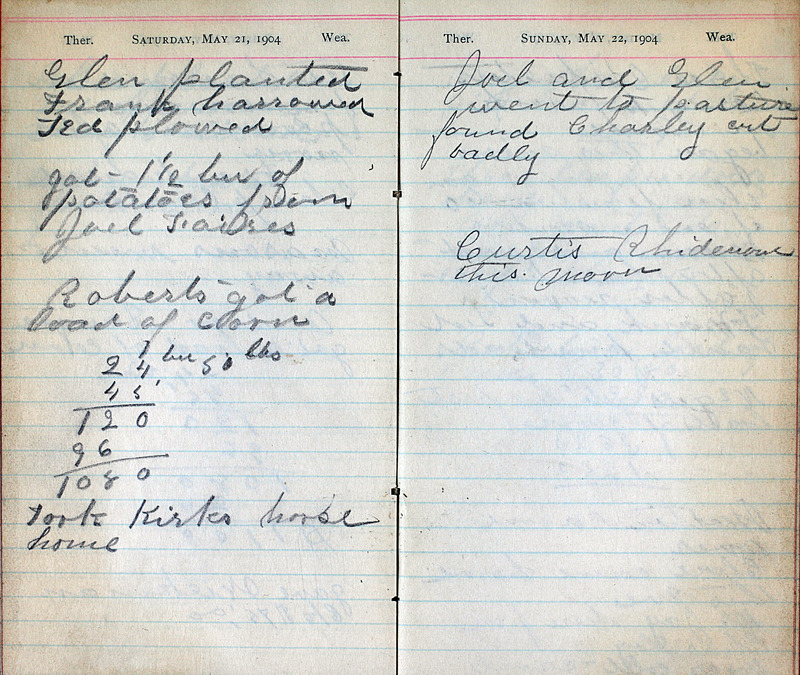 Ther. SATURDAY, MAY 21, 1904 Wea.
Glen planted
Frank harrowed
Ted plowed
got 1 1/2 bu of
potatoes from
Joel Faires
Roberts got a
load of corn
24 bu 50 lbs
45
120
96
1080
took Kirks horse
home
Ther. SUNDAY, MAY 22, 1904 Wea.
Joel and Glen
went to pasture
found Charley cut
badly
Curtis
this moon